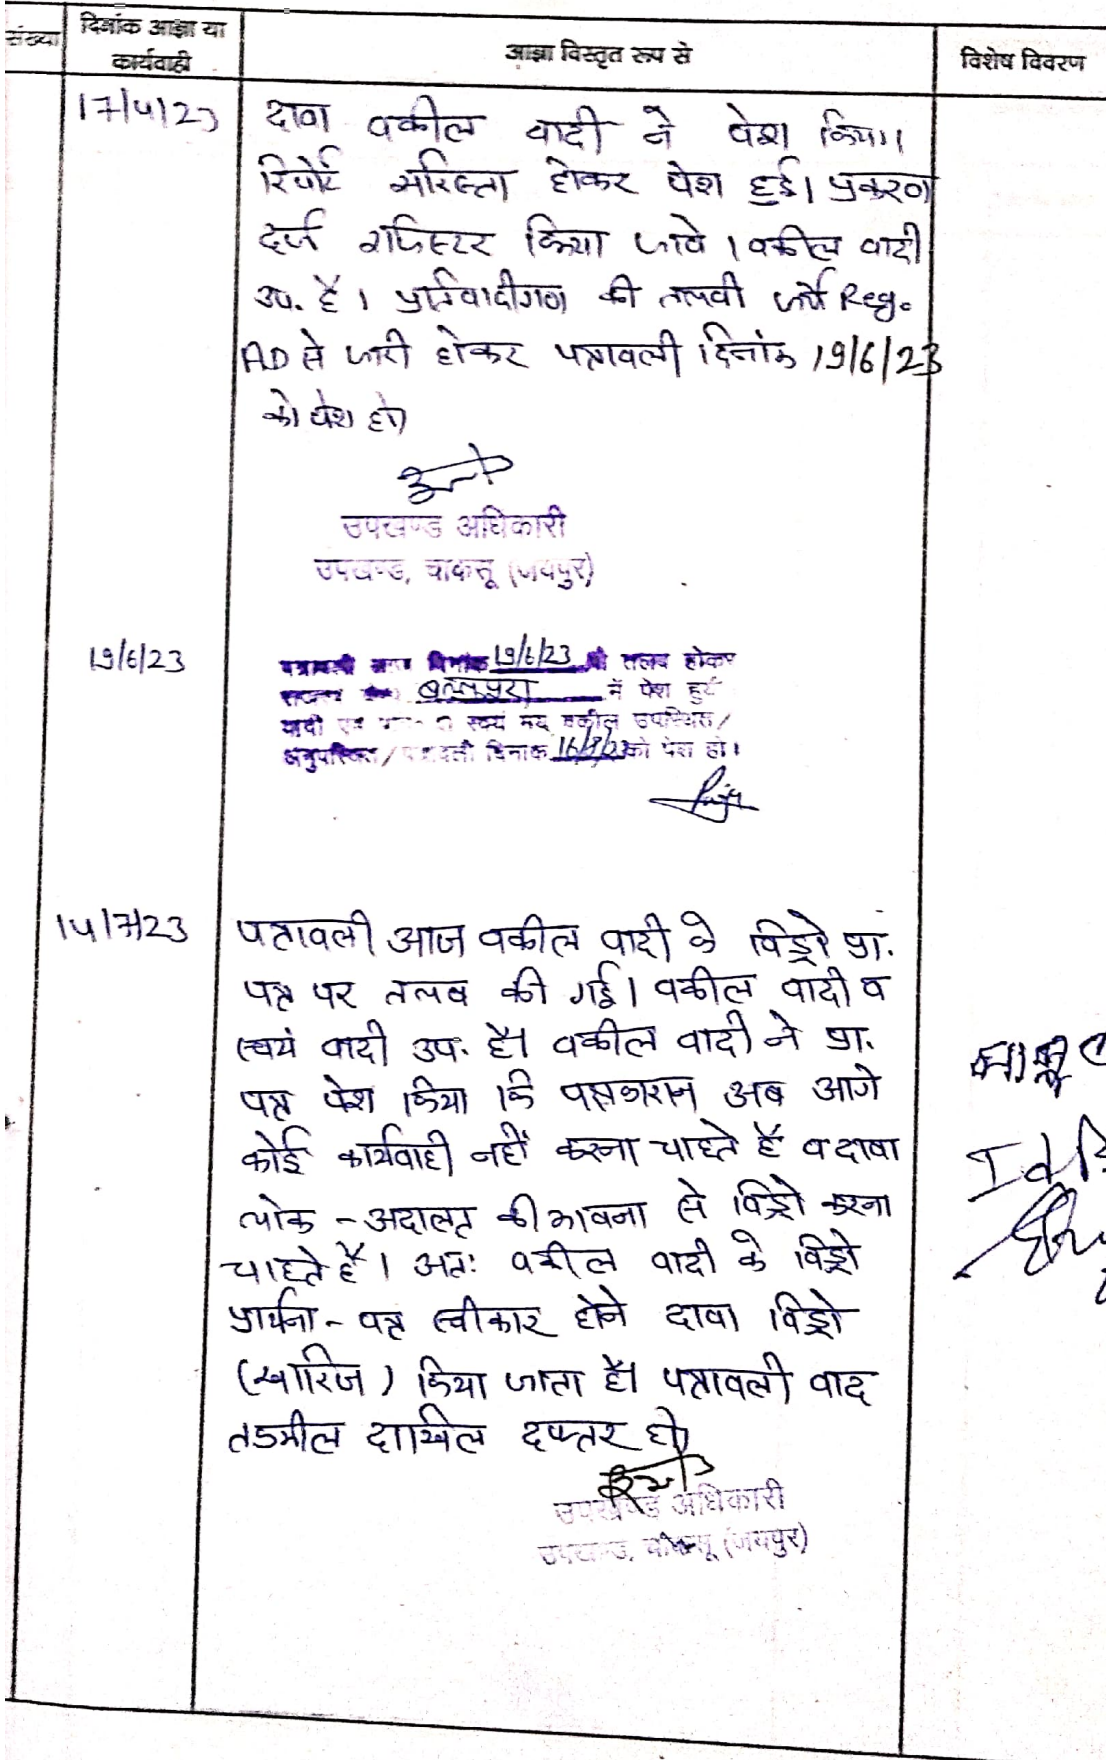 संख्या
दिनांक आज्ञा या
कार्यवाही
आज्ञा विस्तृत रूप से
विशेष विवरण
17/4/23
दावा वकील वादी ने पेश किया।
रिपोर्ट सरिस्ता होकर पेश हुई। प्रकरण
दर्ज रजिस्टर किया जावे। वकील वादी
उप. है। प्रतिवादीगण की तलबी जर्ये Reg.
AD से जारी होकर पत्रावली दिनांक 19/6/23
को पेश हो।
उपखण्ड अधिकारी
उपखण्ड, चाकसू (जयपुर)
19/6/23
पत्रावली दिनांक 19/6/23 को तलब होकर
में पेश हुई
वादी स्वयं मय वकील उपस्थित/
अनुपस्थित/पत्रावली दिनांक को पेश हो।
14/7/23
पत्रावली आज वकील वादी के विड्रो प्रा.
पत्र पर तलब की गई। वकील वादी व
स्वयं वादी उप. है। वकील वादी ने प्रा.
पत्र पेश किया कि पक्षकारान अब आगे
कोई कार्यवाही नहीं करना चाहते है व दावा
लोक-अदालत की भावना से विड्रो करना
चाहते है। अतः वकील वादी के विड्रो
प्रार्थना-पत्र स्वीकार होने दावा विड्रो
(खारिज) किया जाता है। पत्रावली बाद
तकमील दाखिल दफ्तर हो।
उपखण्ड अधिकारी
उपखण्ड, चाकसू (जयपुर)